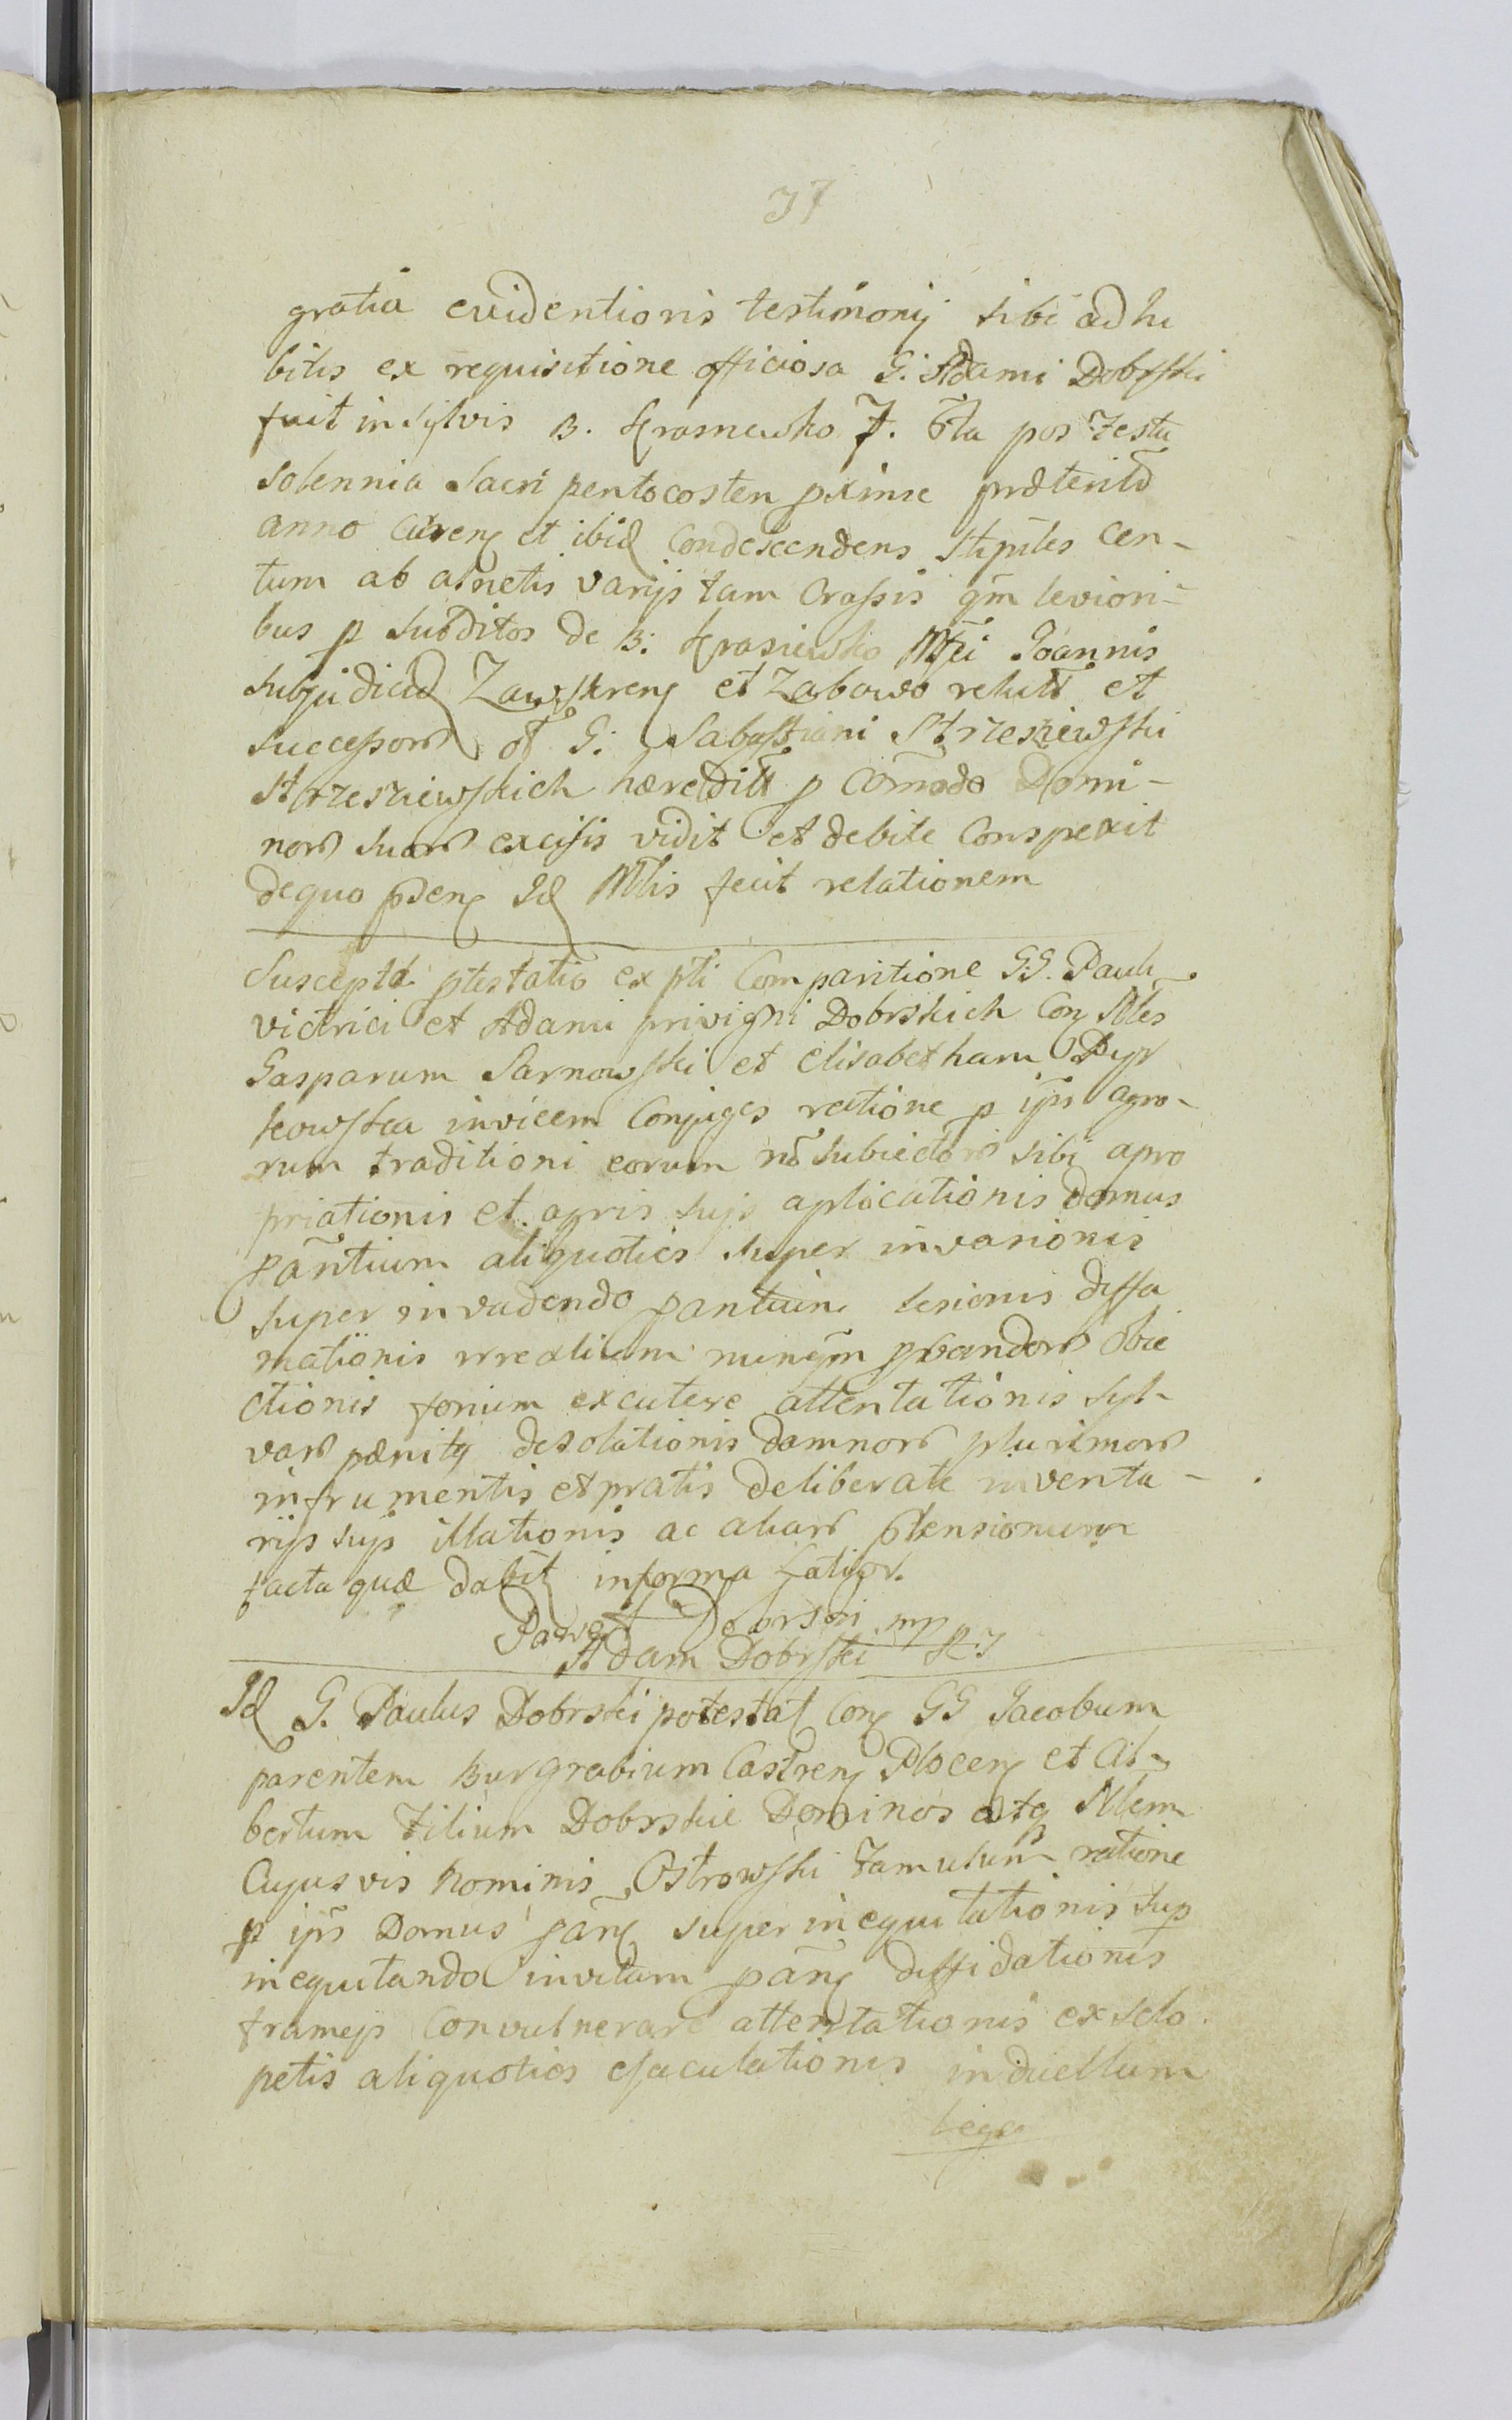 37
gratia evidentioris testimonij sibi adhi
bitis ex requisitione officiosa G: Adami Dobrski
fuit in Sylvis B. Krasnewko F. 6ta pos festa
solennia Sacri pentecosten pxime præterit
anno Curren et ibid Condescendens Stipites Cen-
tum ab alnetis varijs tam Crassis qm leviori-
bus p Subditos de B: Krasnewko Mfci Joannis
Subjudicis Zawskren et Zabowo relict et
Successor ol G: Sabastiani Strzeszewski
Strzeszewskich hæredit p Comodo Domi-
nor suor excisis vidit et debite Conspexit
dequo psens Id Mlis fecit relationem
Suscepta ptestatio ex pti Comparitione GG. Pauli
victrici et Adami privigni Dobrskich Con Nles
Gasparum Sarnowski et Elisabetham
kowska invicem Conjuges ratione p ips agro-
rum traditioni eorum nō subiector sibi apro
priationis et agris suis aplicationis domus
pantium aliquoties super invasionis
super invadendo pantium lesionis diffa
mationis irrealium nunqm pbandor obie
ctionis excutere attentationis Syl-
var pænitq desolationis damnor plurimor
infrumentis et pratis deliberate inventa-
rijs suis illationis ac aliar ptensionum
facta quæ dabit informa latior.
Paweł Dobrski mp
Adam Dobrski
Id G. Paulus Dobrski potestat Con GG Jacobum
parentem Burgrabium Castren Plocen et Al-
bertum Filium Dobrskie Dominos atq Nlem
Cujusvis Nominis Ostrowski Famulum ratione
p ips Domus pan super inequitationis sup
inequitando invitam pan diffidationis
frameis Convulnerare attentationis ex sclo
petis aliquoties ejaculationis induellum